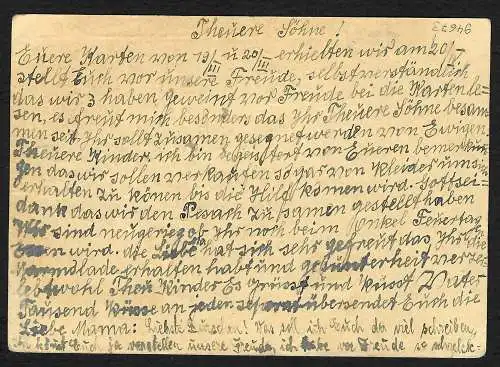 94673
Theuere Söhne!
Euere Karten von 19/III u 20/III erhielten wir am 20/
stellt Euch vor unsere Freude, selbstverständlich
das wir 3 haben Geweint vor Freude bei die Karten le=
sen, es freit mich besonders das Ihr Theuere Söhne besam
men seit, Ihr sollt zusamen gesegnet werden von Ewigen.
Theuere Kinder, ich bin von Eueren bemerkun
gen das wir sollen verkaufen sogar von Kleider um sich
erhalten zu könen bis die Hilf komen wird. Gott sei
dank das wir den Pesach zusamen gestellt haben
Wir sind neugerig ob Ihr noch beim Onkel Feuertag
wird. die Liebe hat sich sehr gefreit das Ihr die
erhalten habt und verzei
lebtwohl Theu Kinder Es Grüsst und küsst Vater
Tausend Küsse an jeden separat übersendet Euch die
Liebe Mama: Liebste Was soll ich Euch da viel schreiben,
Ihr könt Euch ja vorstellen unsere Freude, ich habe vor Freude so